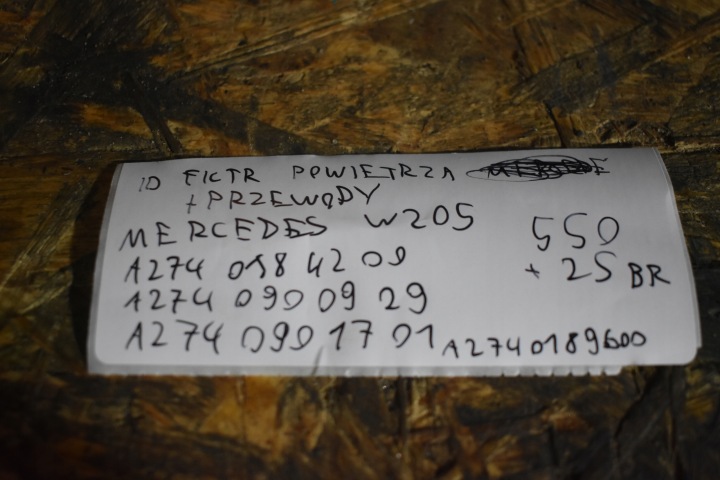 ID FILTR POWIETRZA
+ PRZEWODY
MERCEDES W205
550
+ 25 BR
A274 018 42 09
A274 090 09 29
A274 090 17 01
A2740189600